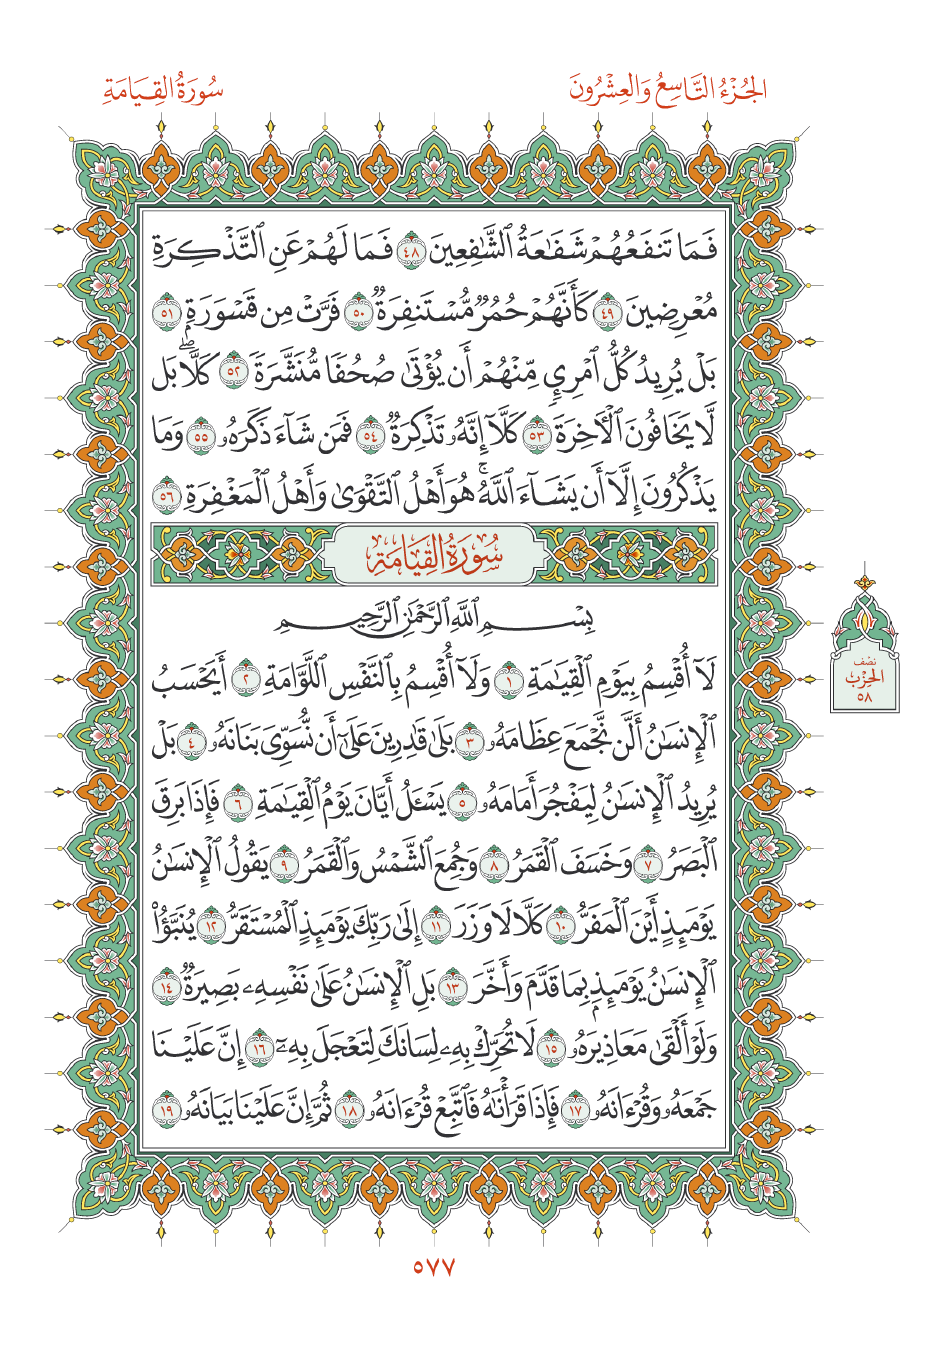 الجُزْءُ التَّاسِعُ وَالعِشْرُونَ
سُورَةُ القِيَامَةِ
فَمَا تَنفَعُهُمْ شَفَٰعَةُ ٱلشَّٰفِعِينَ ٤٨ فَمَا لَهُمْ عَنِ ٱلتَّذْكِرَةِ
مُعْرِضِينَ ٤٩ كَأَنَّهُمْ حُمُرٌ مُّسْتَنفِرَةٌ ٥٠ فَرَّتْ مِن قَسْوَرَةٍۭ ٥١
بَلْ يُرِيدُ كُلُّ ٱمْرِئٍ مِّنْهُمْ أَن يُؤْتَىٰ صُحُفًا مُّنَشَّرَةً ٥٢ كَلَّاۖ بَل
لَّا يَخَافُونَ ٱلْأَخِرَةَ ٥٣ كَلَّآ إِنَّهُۥ تَذْكِرَةٌ ٥٤ فَمَن شَآءَ ذَكَرَهُۥ ٥٥ وَمَا
يَذْكُرُونَ إِلَّآ أَن يَشَآءَ ٱللَّهُۚ هُوَ أَهْلُ ٱلتَّقْوَىٰ وَأَهْلُ ٱلْمَغْفِرَةِ ٥٦
سُورَةُ القِيَامَةِ
بِسْمِ ٱللَّهِ ٱلرَّحْمَٰنِ ٱلرَّحِيمِ
لَآ أُقْسِمُ بِيَوْمِ ٱلْقِيَٰمَةِ ١ وَلَآ أُقْسِمُ بِٱلنَّفْسِ ٱللَّوَّامَةِ ٢ أَيَحْسَبُ
ٱلْإِنسَٰنُ أَلَّن نَّجْمَعَ عِظَامَهُۥ ٣ بَلَىٰ قَٰدِرِينَ عَلَىٰٓ أَن نُّسَوِّىَ بَنَانَهُۥ ٤ بَلْ
يُرِيدُ ٱلْإِنسَٰنُ لِيَفْجُرَ أَمَامَهُۥ ٥ يَسْـَٔلُ أَيَّانَ يَوْمُ ٱلْقِيَٰمَةِ ٦ فَإِذَا بَرِقَ
ٱلْبَصَرُ ٧ وَخَسَفَ ٱلْقَمَرُ ٨ وَجُمِعَ ٱلشَّمْسُ وَٱلْقَمَرُ ٩ يَقُولُ ٱلْإِنسَٰنُ
يَوْمَئِذٍ أَيْنَ ٱلْمَفَرُّ ١٠ كَلَّا لَا وَزَرَ ١١ إِلَىٰ رَبِّكَ يَوْمَئِذٍ ٱلْمُسْتَقَرُّ ١٢ يُنَبَّؤُا۟
ٱلْإِنسَٰنُ يَوْمَئِذٍۭ بِمَا قَدَّمَ وَأَخَّرَ ١٣ بَلِ ٱلْإِنسَٰنُ عَلَىٰ نَفْسِهِۦ بَصِيرَةٌ ١٤
وَلَوْ أَلْقَىٰ مَعَاذِيرَهُۥ ١٥ لَا تُحَرِّكْ بِهِۦ لِسَانَكَ لِتَعْجَلَ بِهِۦٓ ١٦ إِنَّ عَلَيْنَا
جَمْعَهُۥ وَقُرْءَانَهُۥ ١٧ فَإِذَا قَرَأْنَٰهُ فَٱتَّبِعْ قُرْءَانَهُۥ ١٨ ثُمَّ إِنَّ عَلَيْنَا بَيَانَهُۥ ١٩
نصْف
الحِزْب
٥٨
٥٧٧